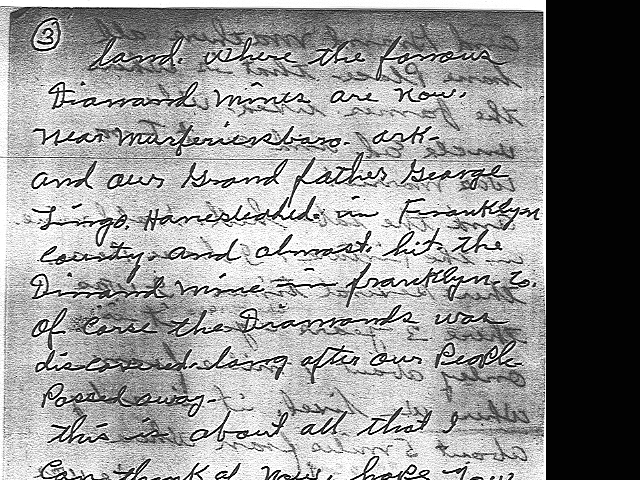 3
land. Where the famous
Diamand mines are now.
near Murfericksbaro. ark-
and our Grand father George
Lingo. Hamesteaded. in Franklyn
county and almost. hit. the
Dimand mine in franklyn. Co.
of corse the Diamands was
discovered long after our People
Passed away-
this is about all that I
can think of now. hope you